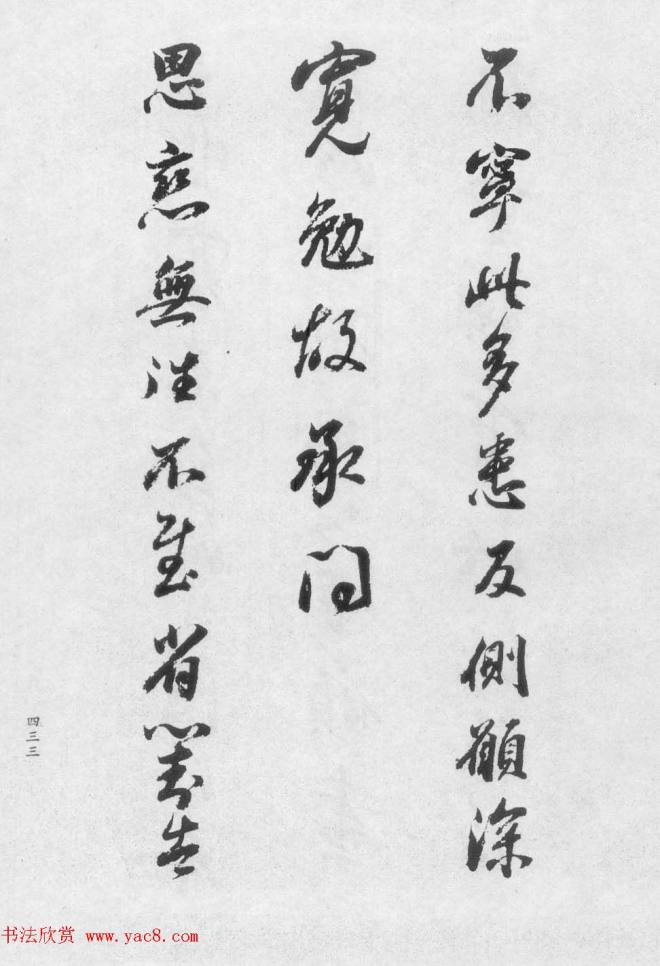 不寧此多患反側願深
寬勉故承问
恩慈無
不
省
告
四三三
书法欣赏 www.yac8.com